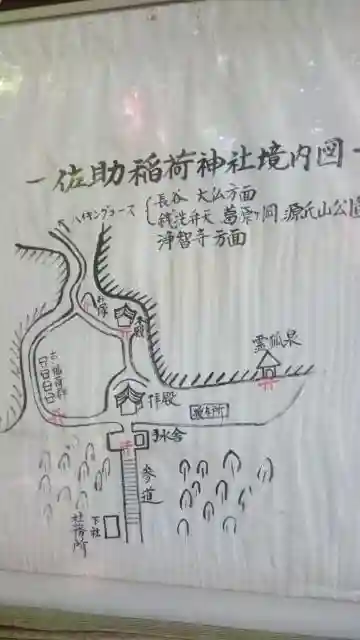 ー佐助稲荷神社境内図ー
ハイキングコース
長谷 大仏方面
銭洗弁天 葛原ヶ岡 源氏山公園
浄智寺方面
本殿
霊狐泉
拝殿
現在所
手水舎
参道
下社
社務所